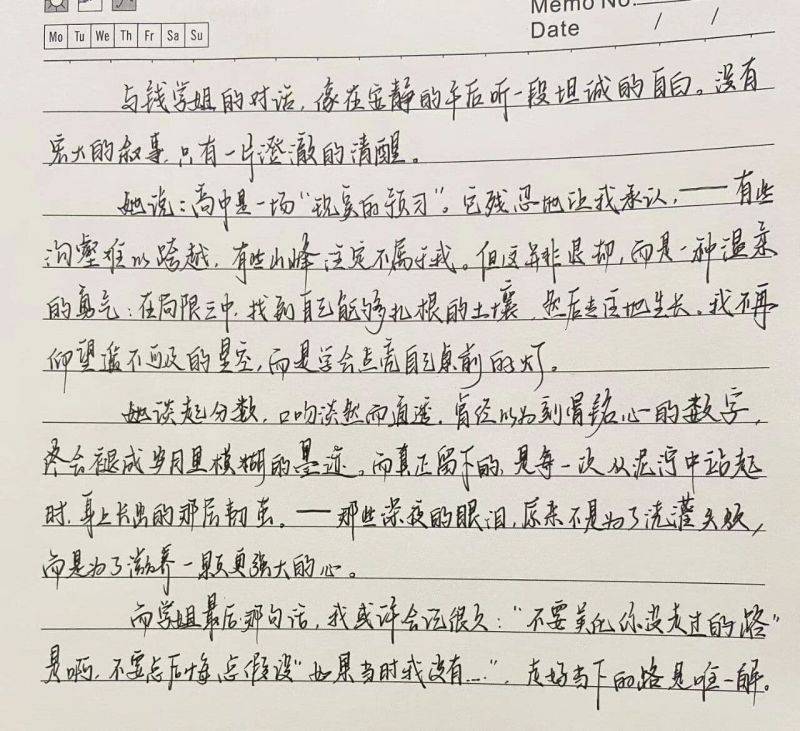 Memo No.
Mo Tu We Th Fr Sa Su
Date / /
与钱学姐的对话，像在安静的午后听一段坦诚的自白。没有
宏大的叙事，只有一片澄澈的清醒。
她说：高中是一场“现实的预习”。它残忍地让我承认，——有些
沟壑难以跨越，有些山峰注定不属于我。但这并非退却，而是一种温柔
的勇气：在局限之中，找到自己能够扎根的土壤，然后专注地生长。我不再
仰望遥不可及的星空，而是学会点亮自己桌前的灯。
她谈起分数，口吻淡然而通透，曾经以为刻骨铭心的数字，
终会褪成岁月里模糊的墨迹。而真正留下的，是每一次从泥泞中站起
时，身上长出的那层韧茧。——那些深夜的眼泪，原来不是为了浇灌失败，
而是为了滋养一颗更强大的心。
而学姐最后那句话，我或许会记很久：“不要美化你没走过的路”
是啊，不要总后悔总假设“如果当时我没有....”，走好当下的路是唯一解。